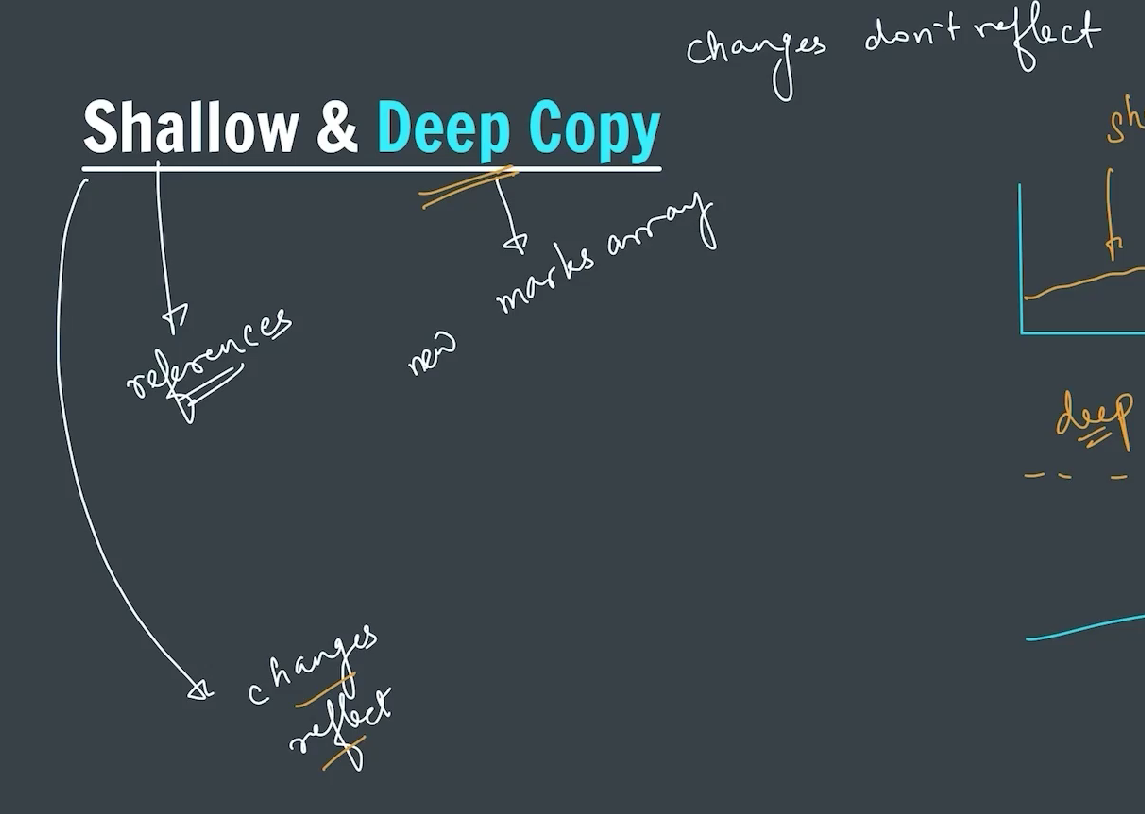 changes don't reflect
Shallow & Deep Copy
sh
references
new marks array
deep
changes
reflect